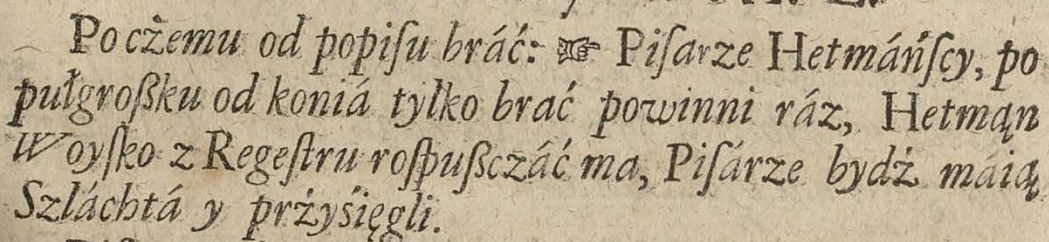 Po cżemu od popiſu bráć: ☞ Piſarze Hetmáńſcy, po
pułgroßku od koniá tylko brać powinni ráz, Hetmąn
Woyſko z Regeſtru roſpußczáć ma, Piſárze bydż máią
Szláchtá y prżyśięgli.